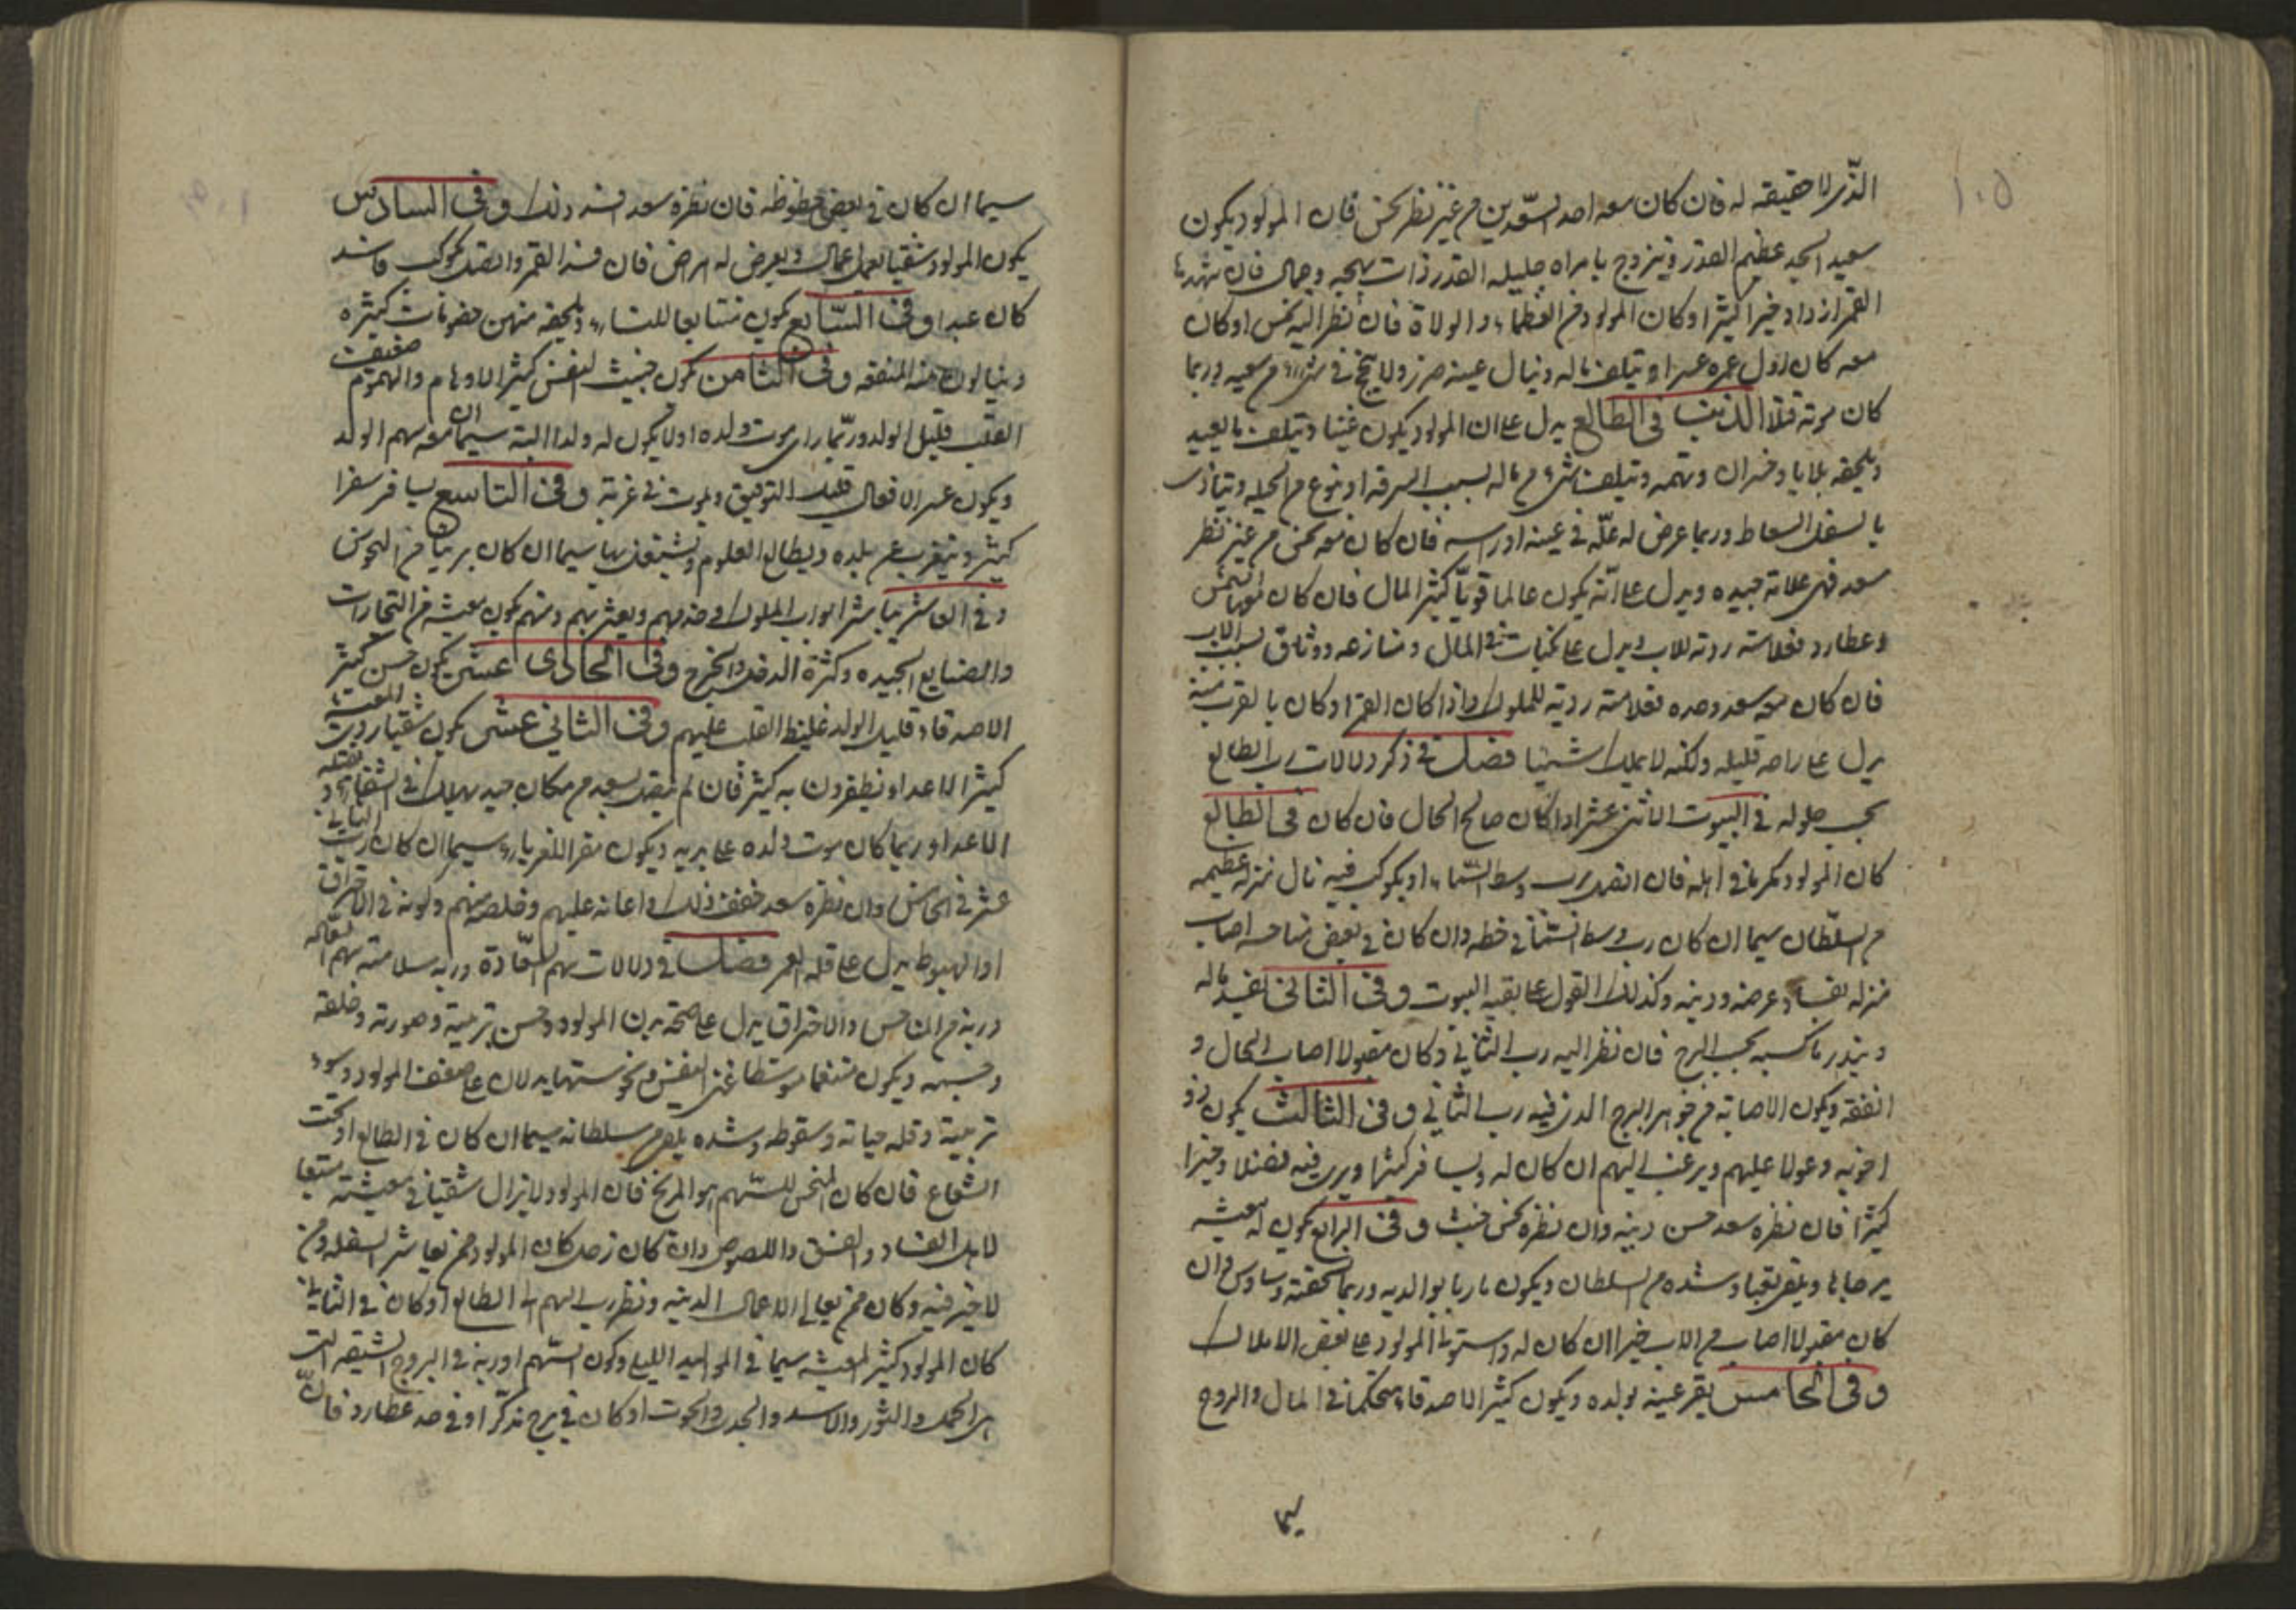 ١٠٥
الذى لا حقيقه له فان كان معه احد السعدين من غير نظر نحس فان المولود يكون
سعيد الجد عظيم القدر ويتزوج بامراه جليله القدر ذات بهجه وجمال فان شهدها
القمر ازداد خيرا كثيرا وكان المولود من العظماء والولاة فان نظر اليه نحس او كان
معه كان اول عمره عسرا ويتلف ماله وينال عينه ضرر ولا ينجح فى من سعيه وربما
كان موته قتلا الذنب فى الطالع يدل على ان المولود يكون وتيلف ما يفيد
ويلحقه بلايا وخسران وتهمه ويتلف شىء من ماله بسبب السرقه او نوع من الحيله ويتاذى
بالسفل السقاط وربما عرض له علّه فى عينه او راسه فان كان معه نحس من غير نظر
سعد فهى علامة جيده ويدل على انّه يكون عالما قويّا كثير المال فان كان معها شمس
وعطارد فعلامته رديه للاب ويدل على نكبات فى المال ومنازعه ووثاق بسبب الاب
فان كان معه سعد وحده فعلامته رديه للملوك واذا كان القمر او كان بالقرب منه
يدل على راحه قليله ولكنه لا يملك شيئا فصل فى ذكر دلالات رب الطالع
بحسب حلوله فى البيوت الاثنى عشر اذا كان صالح الحال فان كان فى الطالع
كان المولود مكرما فى اهله فان اتصل برب وسط السماء او بكوكب فيه نال منزله عظيمه
من السلطان سيما ان كان رب وسط السماء فى حظه وان كان فى بعض مناحسه اصاب
منزله بفساد عرضه ودينه وكذلك القول على بقيه البيوت وفى الثانى يفيد ماله
ويبذر ما كسبه بحسب البرج فان نظر اليه رب الثانى وكان مقبولا اصاب المال و
انفقه ويكون الاصابة من جوهر البرج الذى فيه رب الثانى وفى الثالث يكون ذو
اخوه وعولا عليهم ويرغب اليهم ان كان له ويسافر كثيرا ويرى فيه فضلا وخيرا
كثيرا فان نظره سعد حسن دينه وان نظره نحس خبث وفى الرابع يكون له معيشه
يرضاها ويلقى تعبا وشده من السلطان ويكون بارا بوالديه وربما لحقته وساوس وان
كان مقبولا اصاب من الاب خيرا ان كان له واستولى المولود على بعض الاملاك
وفى الخامس يقر عينه بولده ويكون كثير الاصدقاء متحكما فى المال والروح
سيما
سيما ان كان فى بعض حظوظه فان نظره سعد افسد ذلك وفى السادس
يكون المولود شقيا يعمل اعمال ويعرض له امراض فان فسد القمر واتصل بكوكب فاسد
كان عبدا وفى السّابع يكون متتابعا للنساء ويلحقه منهن خصومات كثيره
وينالون منه المنفعه وفى الثامن يكون خبيث النفس كثير الاوهام والهموم ضعيف
القلب قليل الولد وربّما راى موت ولده او لا يكون له ولدا البتة سيما ان معه سهم الولد
ويكون عسر الافعال قليل التوفيق ويموت فى غربة وفى التاسع يسافر سفرا
كثيرا ويتغرب عن بلده ويطالع العلوم ويشتغل بها سيما ان كان بريئا من النحوس
وفى العاشر يباشر ابواب الملوك وخدمهم ويعيش بهم ومنهم يكون معيشه من التجارات
والصنايع الجيده وكثرة الدخل والخرج وفى الحادى عشر يكون حسن كثير
الاصدقاء قليل الولد غليظ القلب عليهم وفى الثانى عشر يكون شقيا ردى المعيشه
كثير الاعداء ويظفرون به كثير فان لم يتصل بسعد من مكان جيد يهلك فى الشقاء ويقتله
الاعداء وربما كان موت والده على يديه ويكون مقر اللغرباء سيما ان كان رب الثانى
عشر فى الخامس وان نظره سعد خفف ذلك واعانه عليهم وخلصه منهم وكونه فى الاحتراق
او الهبوط يدل على قلة العمر فصل فى دلالات سهم السّعادة وربه سلامة سهم السعاده
وربه من المناحس والاحتراق يدل على صحة بدن المولود وحسن تربيته وصورته وخلقه
وجسمه ويكون متنعما متوسطا غنى النفس ونحوستهما يدلان على ضعف المولود وسوء
تربيته وقله حياته وسقوطه وشده يلقى من سلطانه سيما ان كان فى الطالع او تحت
الشعاع فان كان المنحس للسّهم هو المريخ فان المولود لا يزال شقيا فى معيشته متبعا
لاهل الفساد والفسق واللصوص وان كان زحل كان المولود ممن يعاشر السفله ومن
لا خير فيه وكان ممن يعانى الاعمال الدنيه ونظر رب السهم الى الطالع او كان فى الثانى
كان المولود كثير المعيشه سيما فى المواليد الليليه وكون السّهم او ربه فى البروج الشبقه التى
هى الحمل والثور والاسد والجدى والحوت او كان فى برج مذكّر او فى حد عطارد فانّ